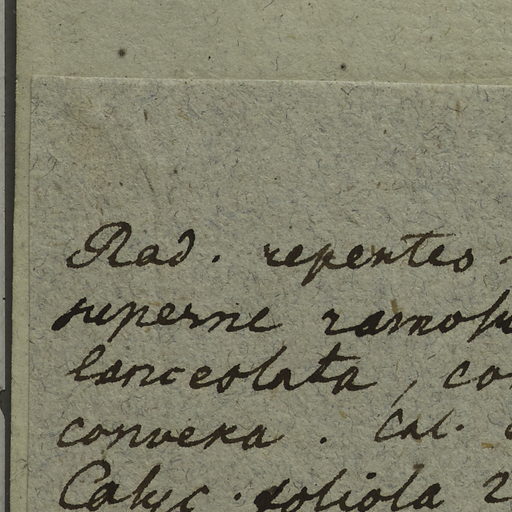 Rad. repentes
superne ramosu
lanceolata, con
convexa. Cal.
Calyc. foliola 2